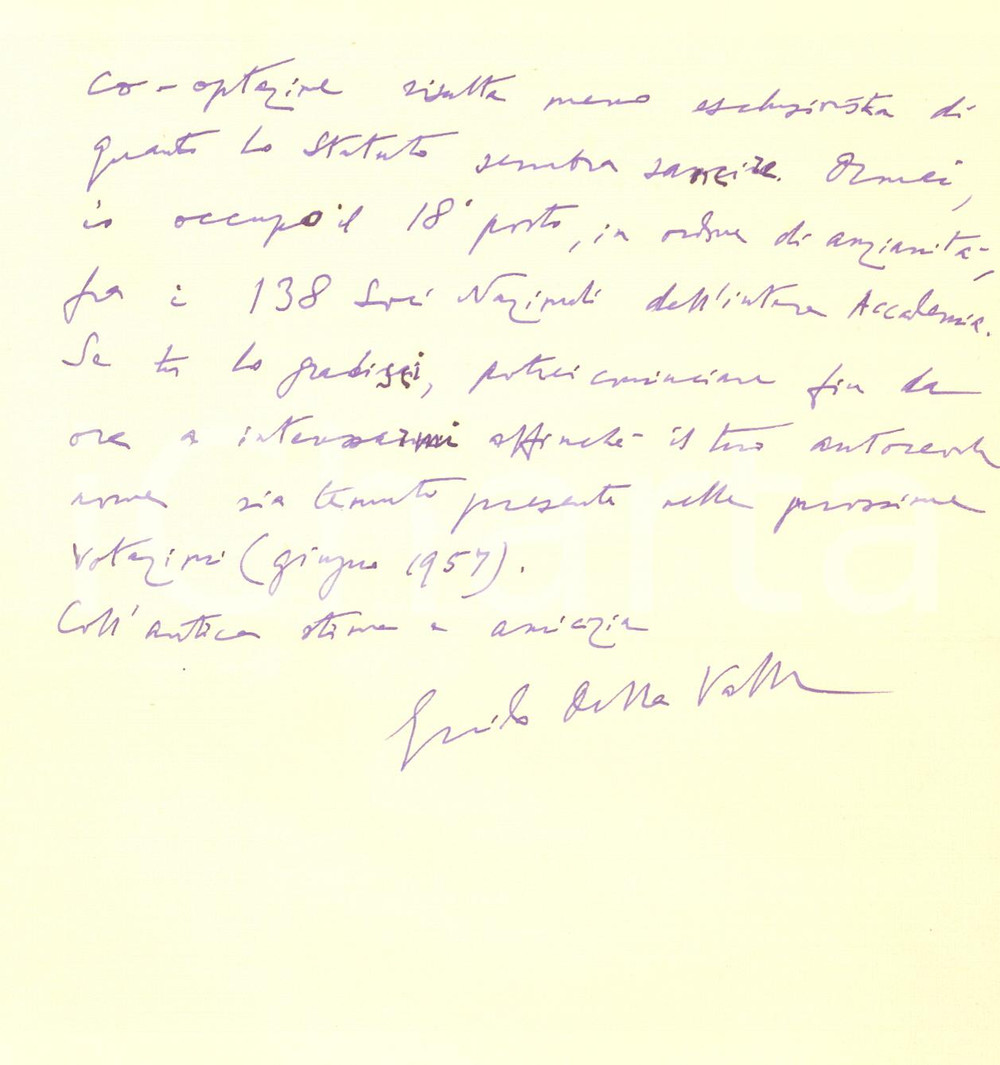 co-optazione risulta meno esclusivista di
quanto lo Statuto sembra sancire. Ormai,
io occupo il 18° posto, in ordine di anzianità,
fra i 138 Soci Nazionali dell'intera Accademia.
Se tu lo gradisci, potrei cominciare fin da
ora a interessarmi affinché il tuo autorevole
nome sia tenuto presente nelle prossime
Votazioni (giugno 1957).
Coll'antica stima e amicizia
Guido Della Valle
iCharta